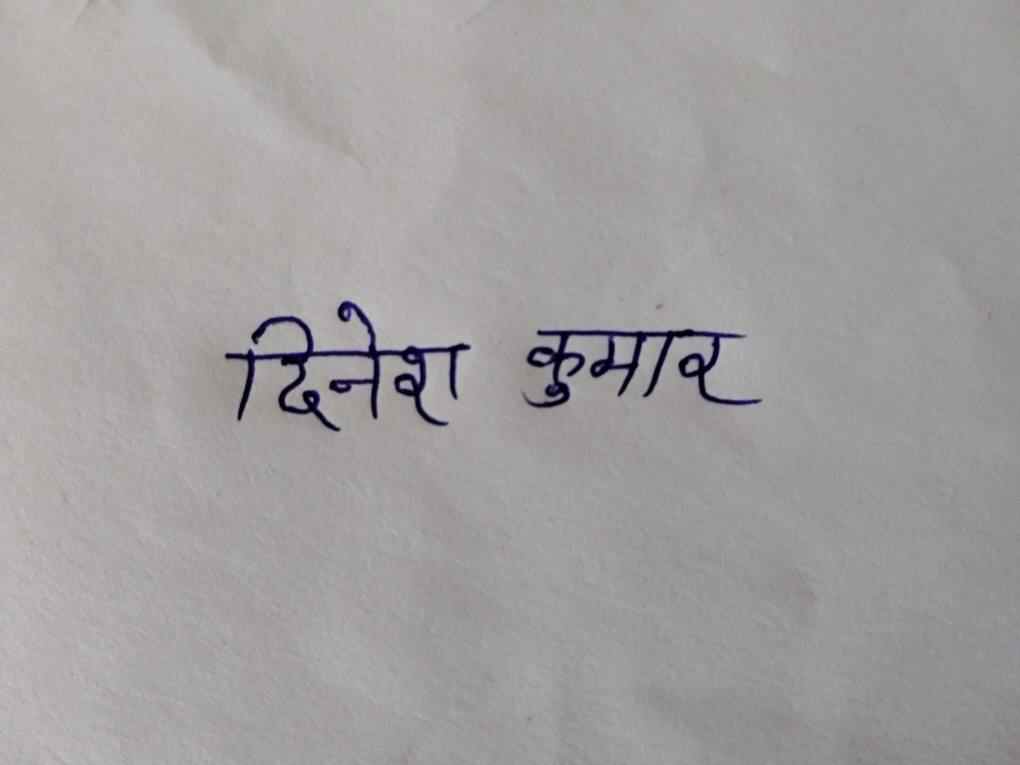 दिनेश कुमार